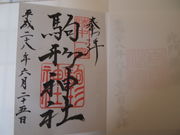 奉拝
駒形神社
平成二八年六月二十五日